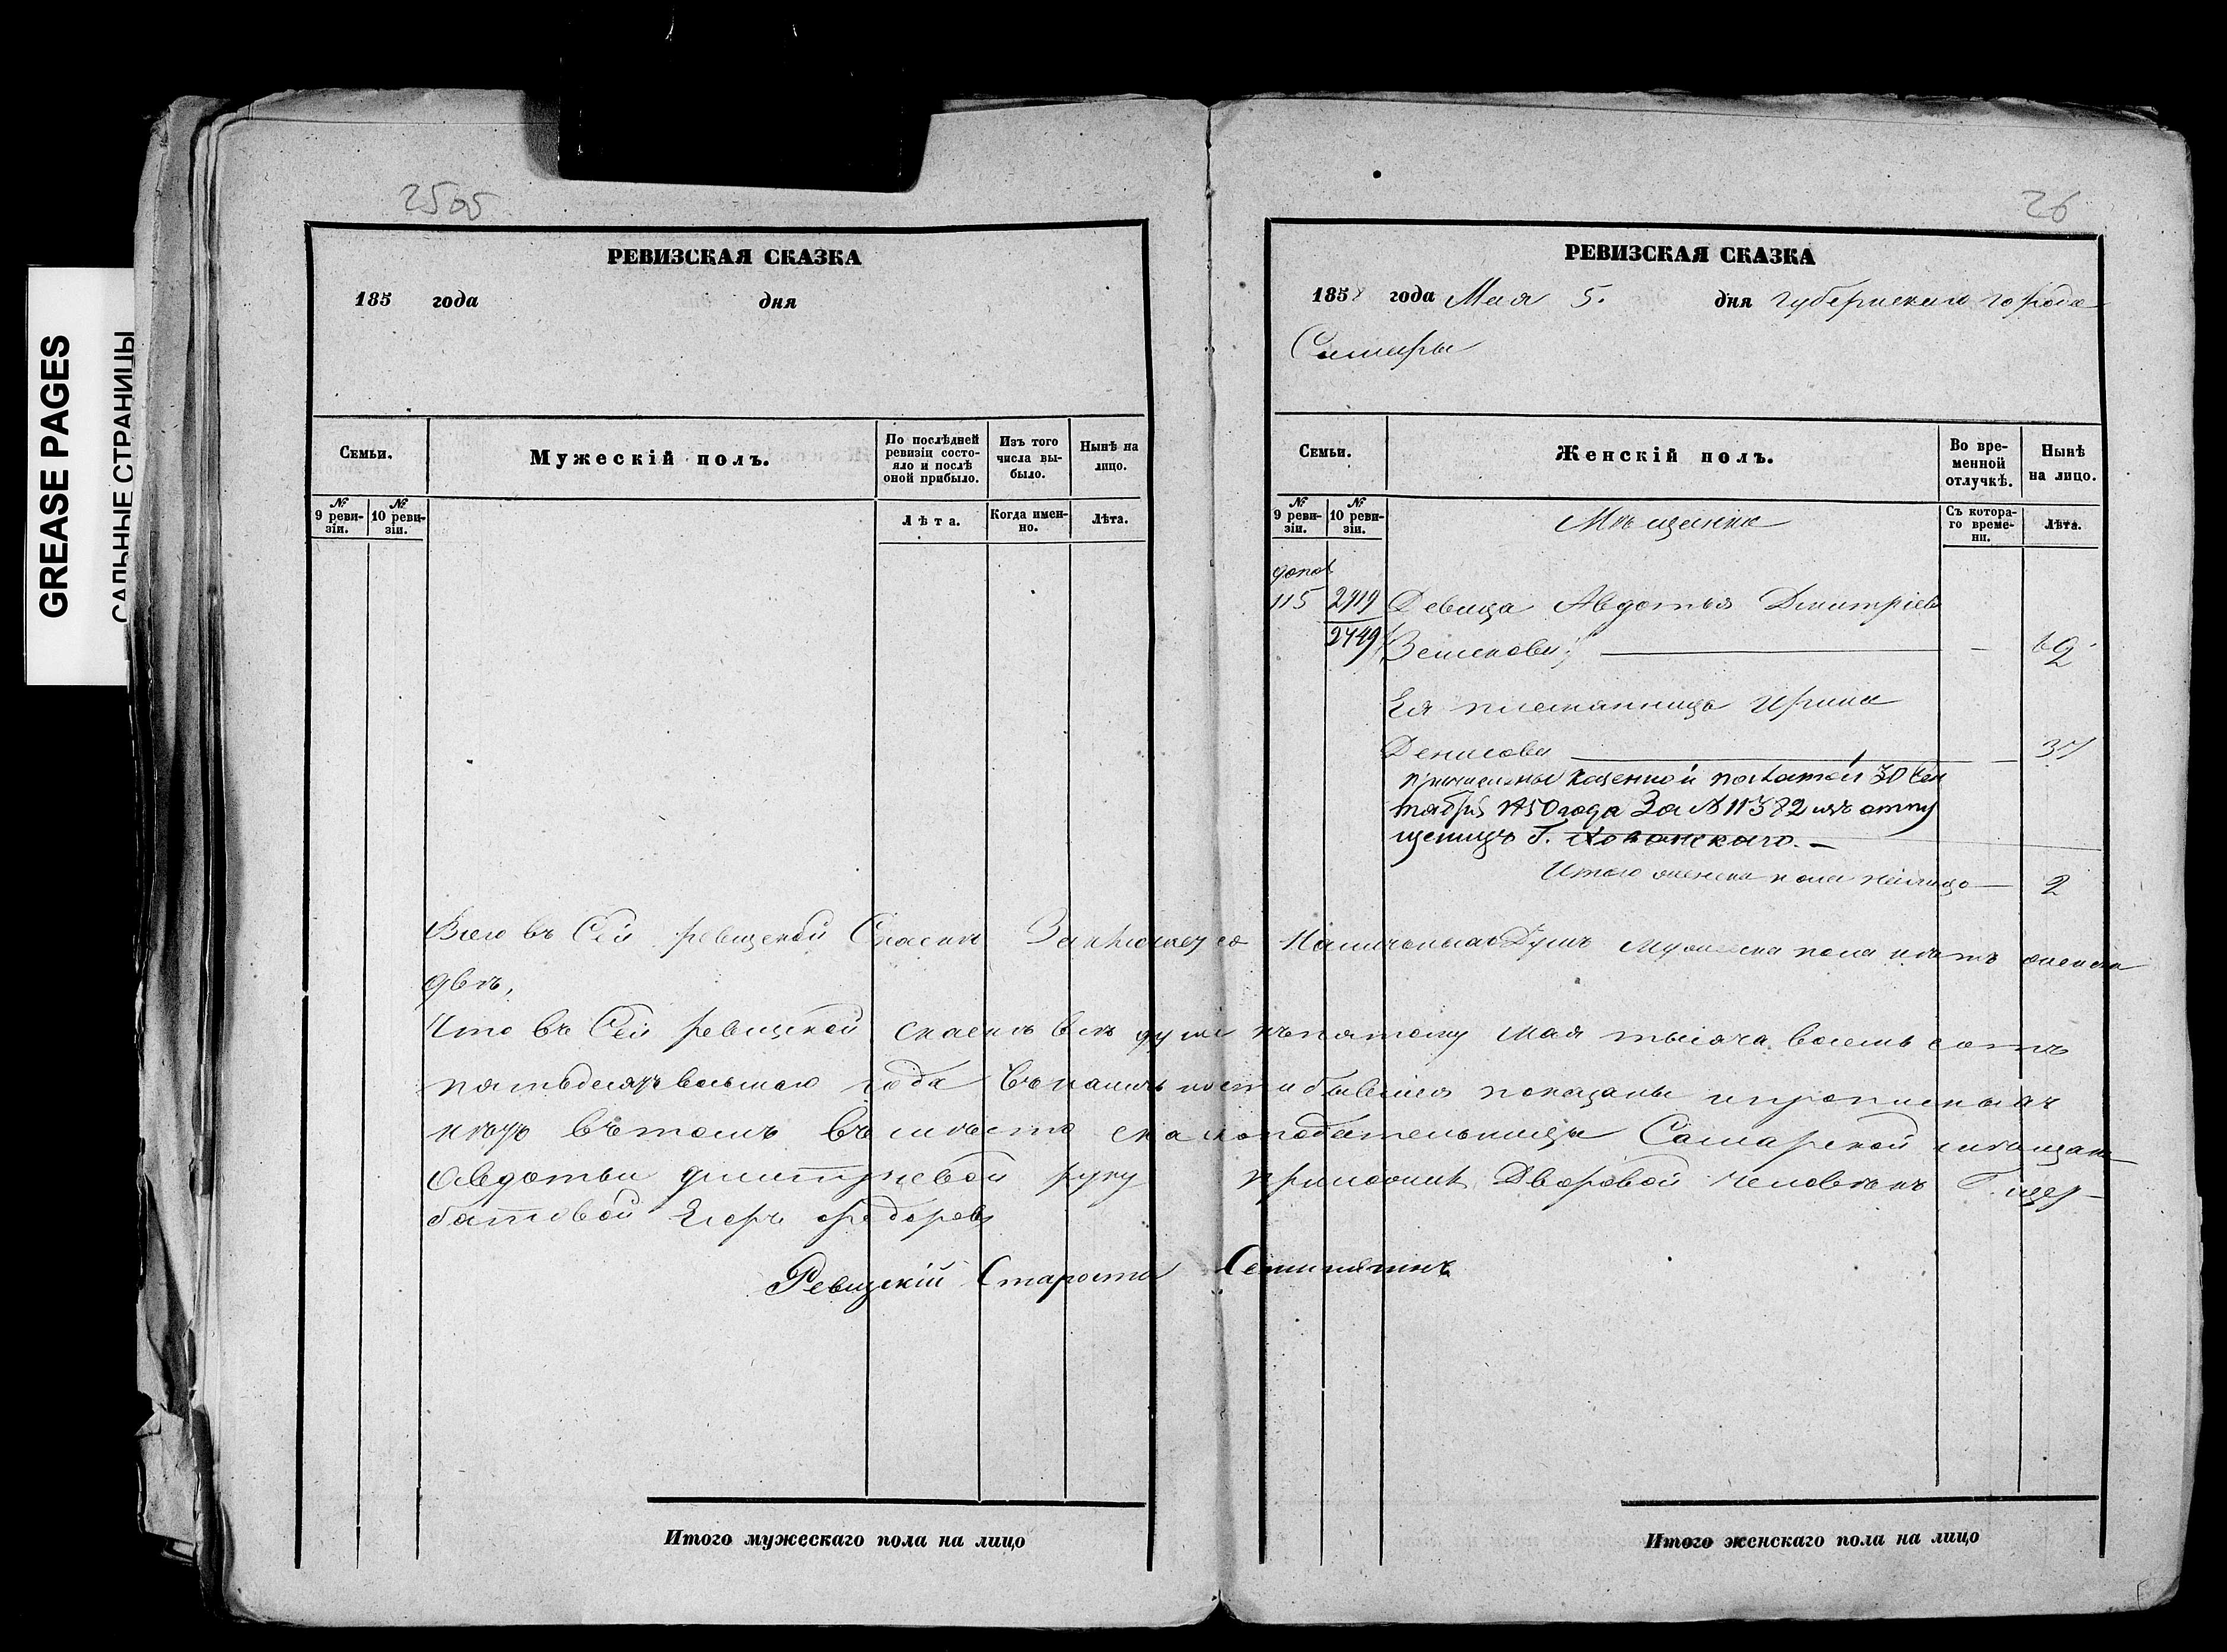 GREASE PAGES
САЛЬНЫЕ СТРАНИЦЫ
25об
РЕВИЗСКАЯ СКАЗКА
185 года дня
Семьи.
Мужескій полъ.
По послѣдней ревизіи состояло и послѣ оной прибыло.
Изъ того числа выбыло.
Нынѣ на лицо.
№ 9 ревизіи.
№ 10 ревизіи.
Лѣта.
Когда именно.
Лѣта.
26
РЕВИЗСКАЯ СКАЗКА
1858 года Мая 5. дня губернскаго города
Самары
Семьи.
Женскій полъ.
Во временной отлучкѣ.
Нынѣ на лицо.
№ 9 ревизіи.
№ 10 ревизіи.
Мѣщанки
Съ котораго времени.
Лѣта.
допол
115 2919 Девица Авдотья Дмитріев
2749 — 62
Ея племянница Ирина
Денисова — 37
причислены казенной полатой 30 Сен
тября 1850 года За № 11382 изъ отпу
щеницъ Г. Хованскаго. —
Итого женска пола налицо — 2
Всего въ Сей ревизской Сказкѣ Заключается Наличныхъ Душъ мужеска пола нѣтъ женска
двѣ,
Что въ Сей ревизской сказкѣ всѣ души къ пятому мая тысяча восемь сотъ
пятьдесятъ восьмаго года въ наличности бывшія показаны и прописныхъ
нѣтъ въ томъ вмѣсто сказкоподательницы Самарской мѣщан
Авдотьи Дмитріевой руку приложилъ Дворовой человѣкъ Г. Щер-
батовой Егоръ Федоровъ
Ревизскій Староста
Итого мужескаго пола на лицо
Итого женскаго пола на лицо